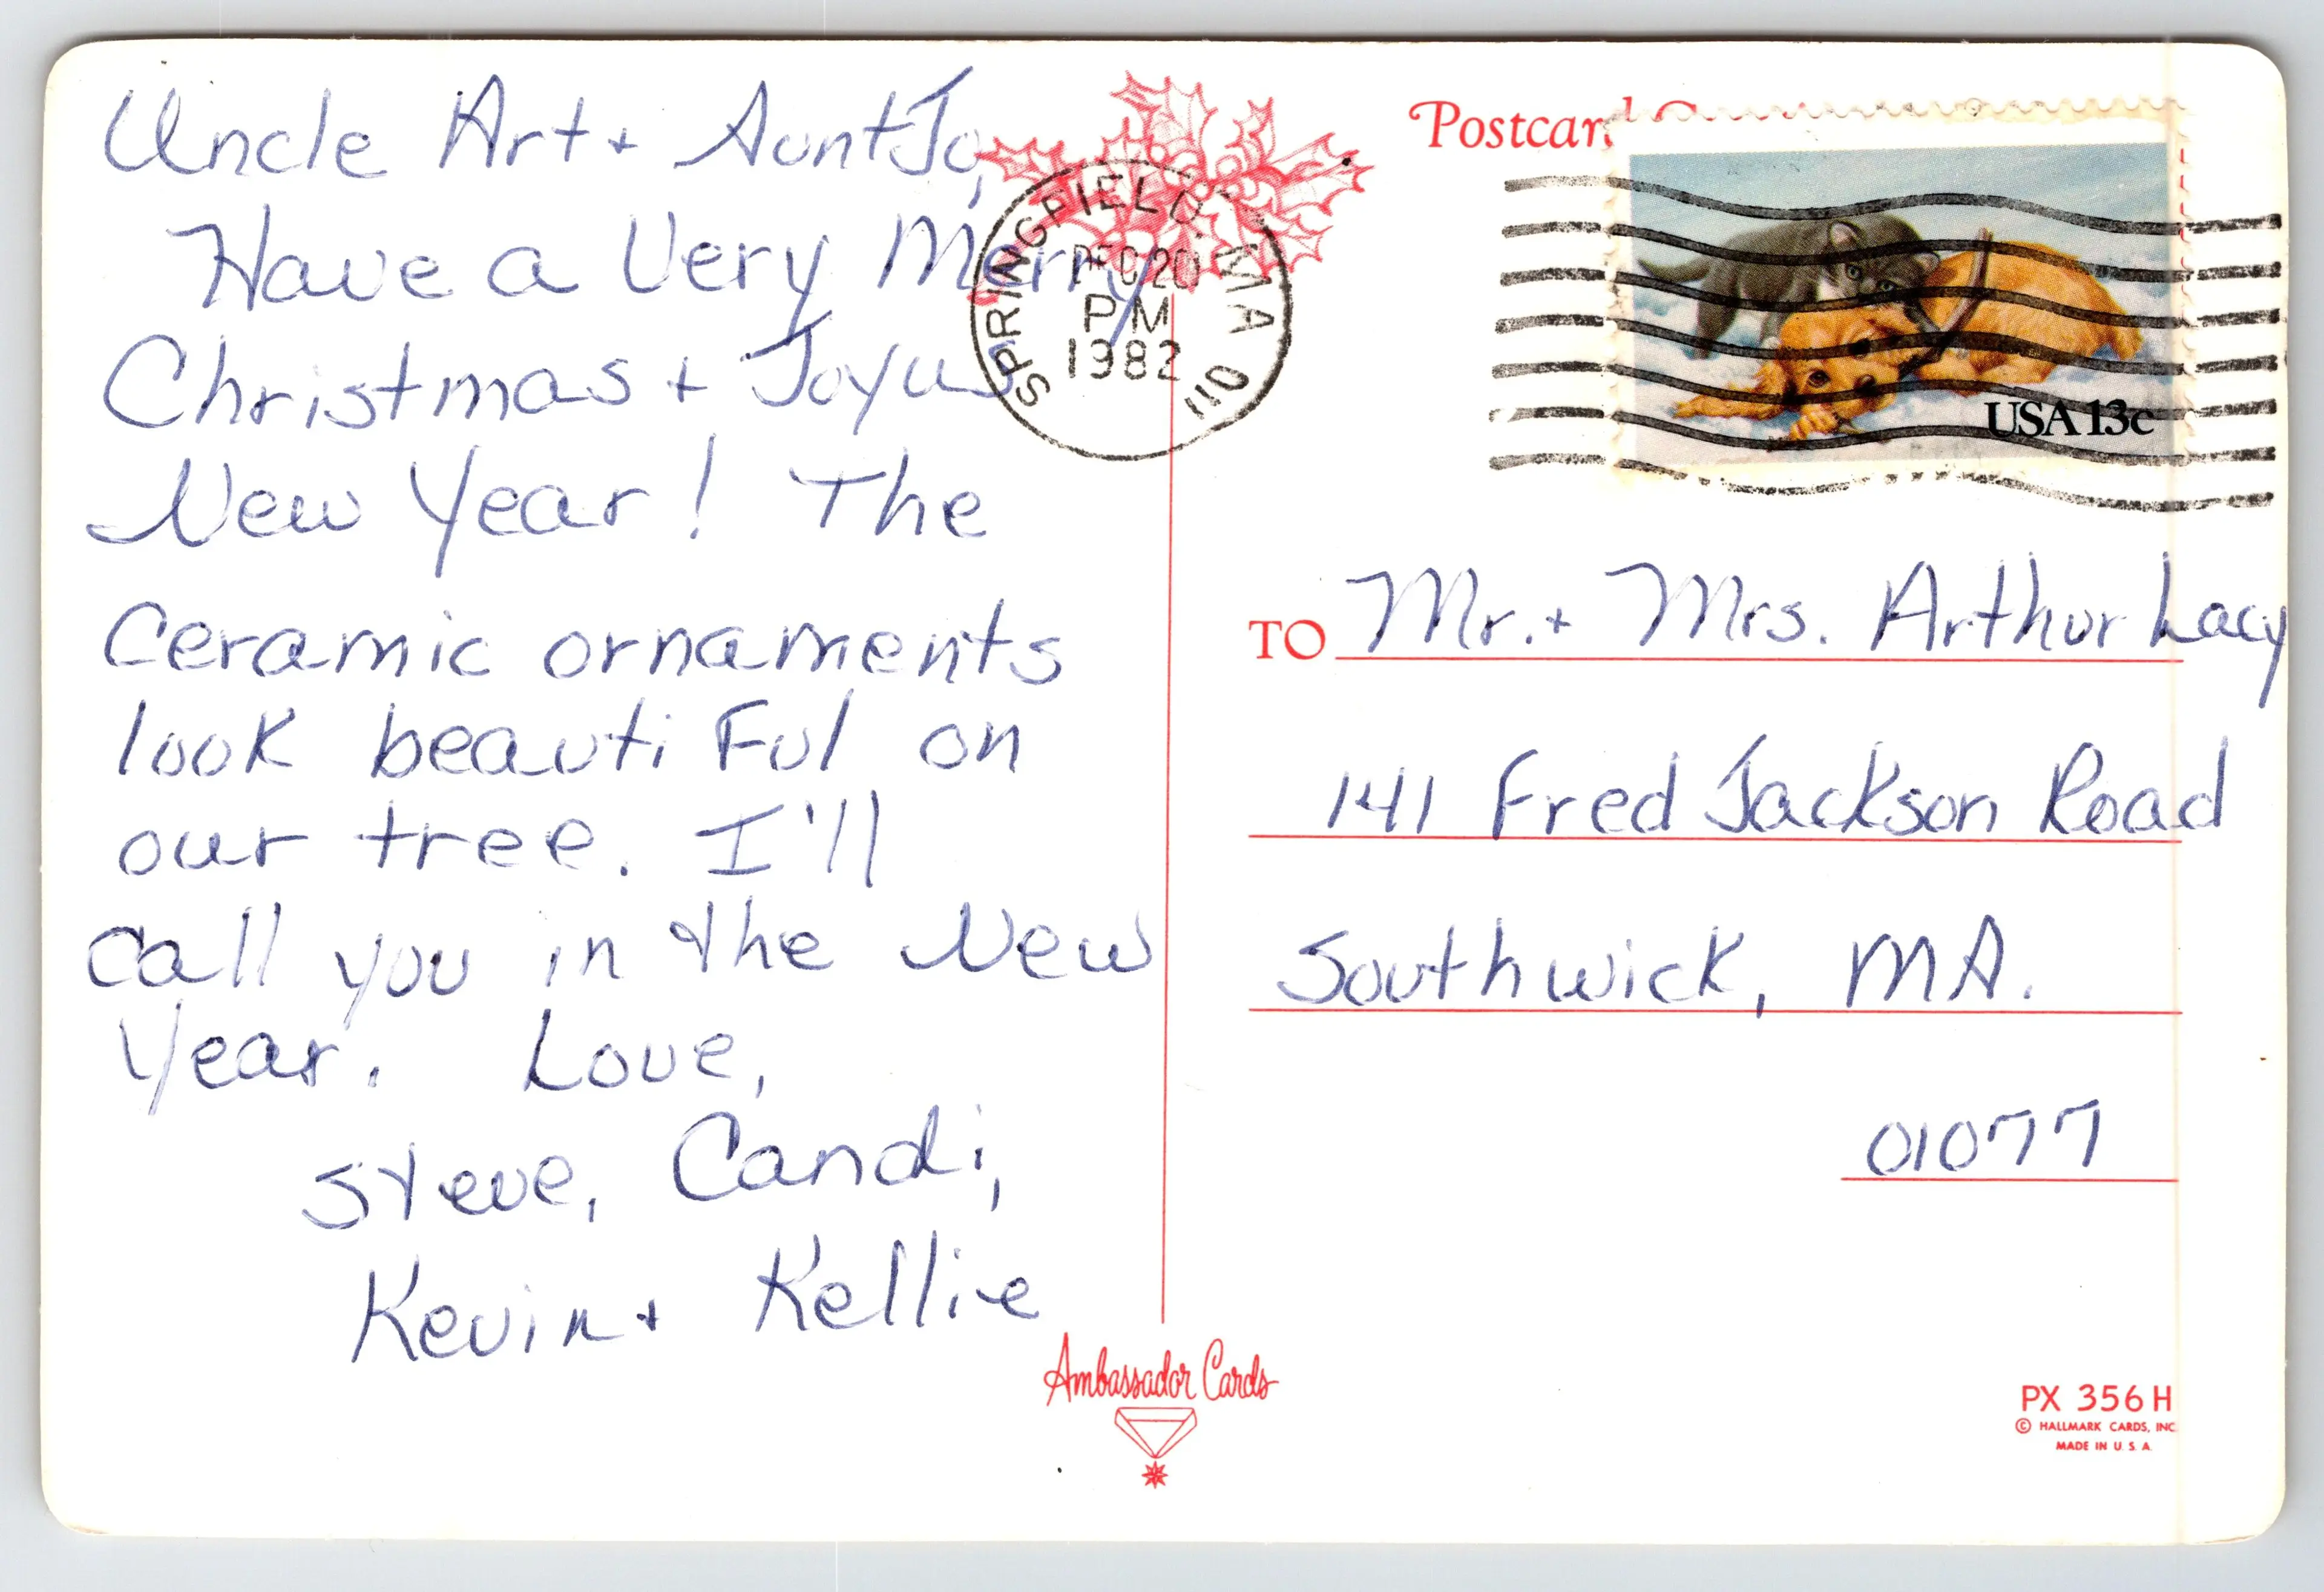 Uncle Art + Aunt Jo,
Have a Very Merry
Christmas + Joyus
New Year! The
Ceramic ornaments
look beautiful on
our tree. I'll
call you in the New
Year. Love,
Steve, Candi,
Kevin + Kellie
Postcard
SPRINGFIELD, MA 011
DEC 20
PM
1982
USA 13c
TO Mr. + Mrs. Arthur Lacy
141 Fred Jackson Road
Southwick, MA.
01077
Ambassador Cards
PX 356 H
© HALLMARK CARDS, INC.
MADE IN U.S.A.